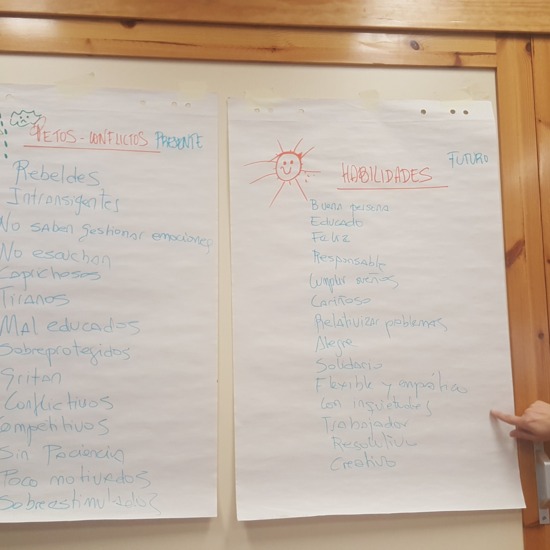 RETOS - CONFLICTOS PRESENTE
Rebeldes
Intransigentes
No saben gestionar emociones
No escuchan
Caprichosos
Tiranos
Mal educados
Sobreprotegidos
Gritan
Conflictivos
Competitivos
Sin Paciencia
Poco motivados
Sobreestimulados
HABILIDADES FUTURO
Buena persona
Educado
Feliz
Responsable
Cumplir sueños
Cariñoso
Relativizar problemas
Alegre
Solidario
Flexible y empático
Con inquietudes
Trabajador
Resolutivo
Creativo